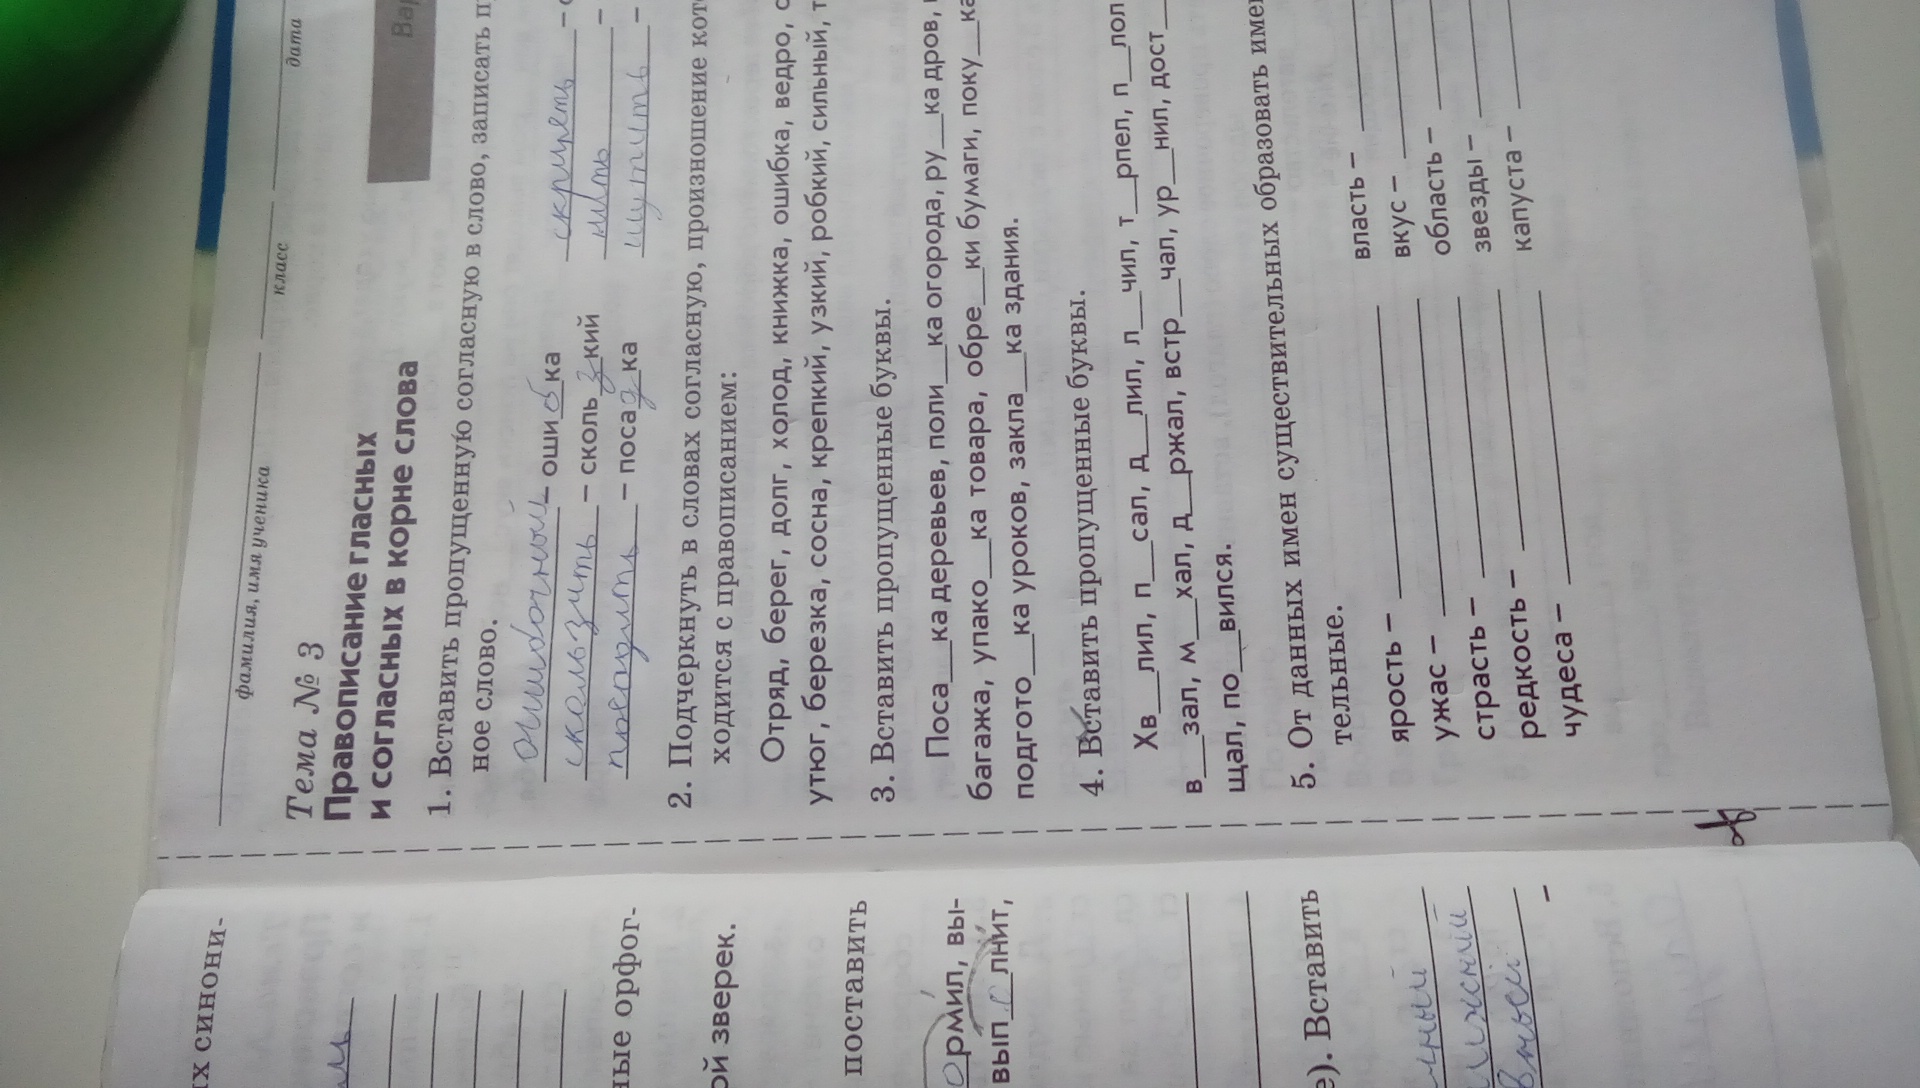 их синони-
ные орфог-
ой зверек.
поставить
ормил, вы-
вып о лнит,
е). Вставить
фамилия, имя ученика класс дата
Тема № 3
Правописание гласных
и согласных в корне слова
Вар
1. Вставить пропущенную согласную в слово, записать п
ное слово.
ошибочный – оши б ка
скользить – сколь з кий
– поса д ка
шутить –
2. Подчеркнуть в словах согласную, произношение кот
ходится с правописанием:
Отряд, берег, долг, холод, книжка, ошибка, ведро, с
утюг, березка, сосна, крепкий, узкий, робкий, сильный, т
3. Вставить пропущенные буквы.
Поса__ка деревьев, поли__ка огорода, ру__ка дров,
багажа, упако__ка товара, обре__ки бумаги, поку__ка
подгото__ка уроков, закла__ка здания.
4. Вставить пропущенные буквы.
Хв__лил, п__сал, д__лил, л__чил, т__рпел, п__лол
в__зал, м__хал, д__ржал, встр__чал, ур__нил, дост__
щал, по__вился.
5. От данных имен существительных образовать име
тельные.
ярость – власть –
ужас – вкус –
страсть – область –
редкость – звезды –
чудеса – капуста –